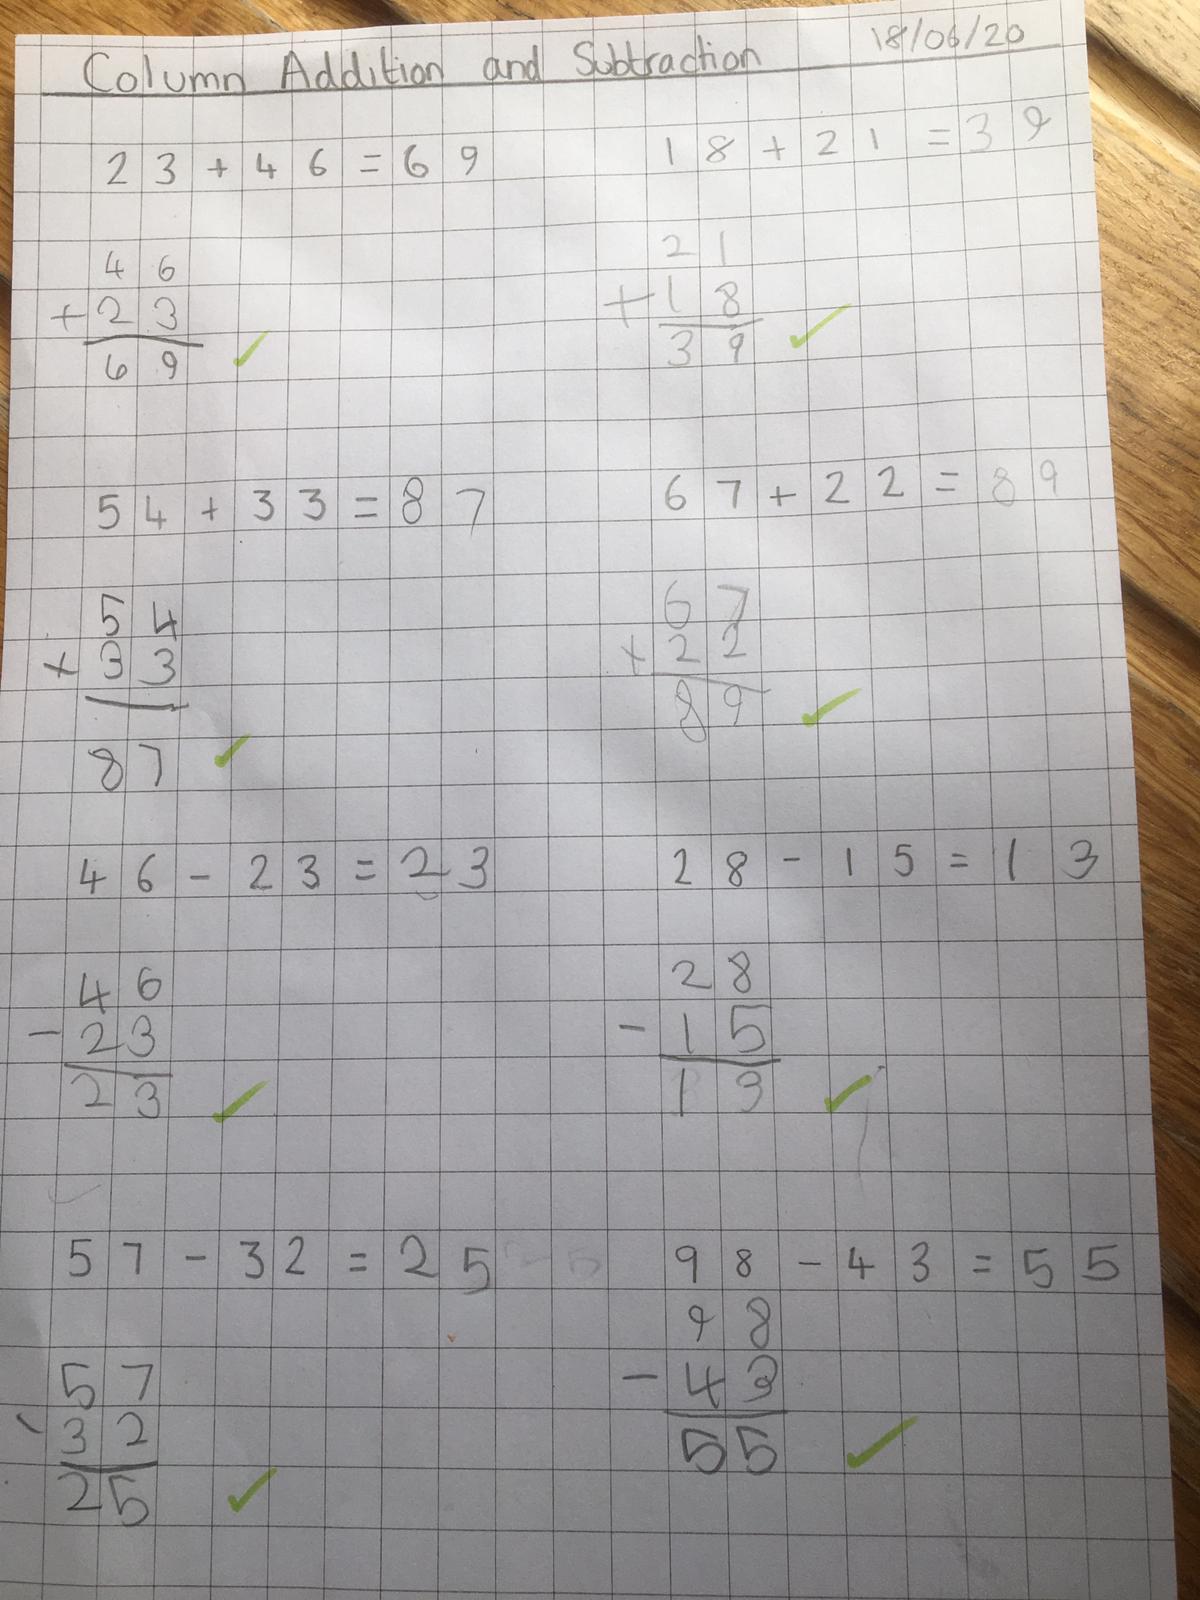 Column Addition and Subtraction 18/06/20
23+46=69
46
+23
69
18+21=39
21
+18
39
54+33=87
54
+33
87
67+22=89
67
+22
89
46-23=23
46
-23
23
28-15=13
28
-15
13
57-32=25
57
-32
25
98-43=55
98
-43
55